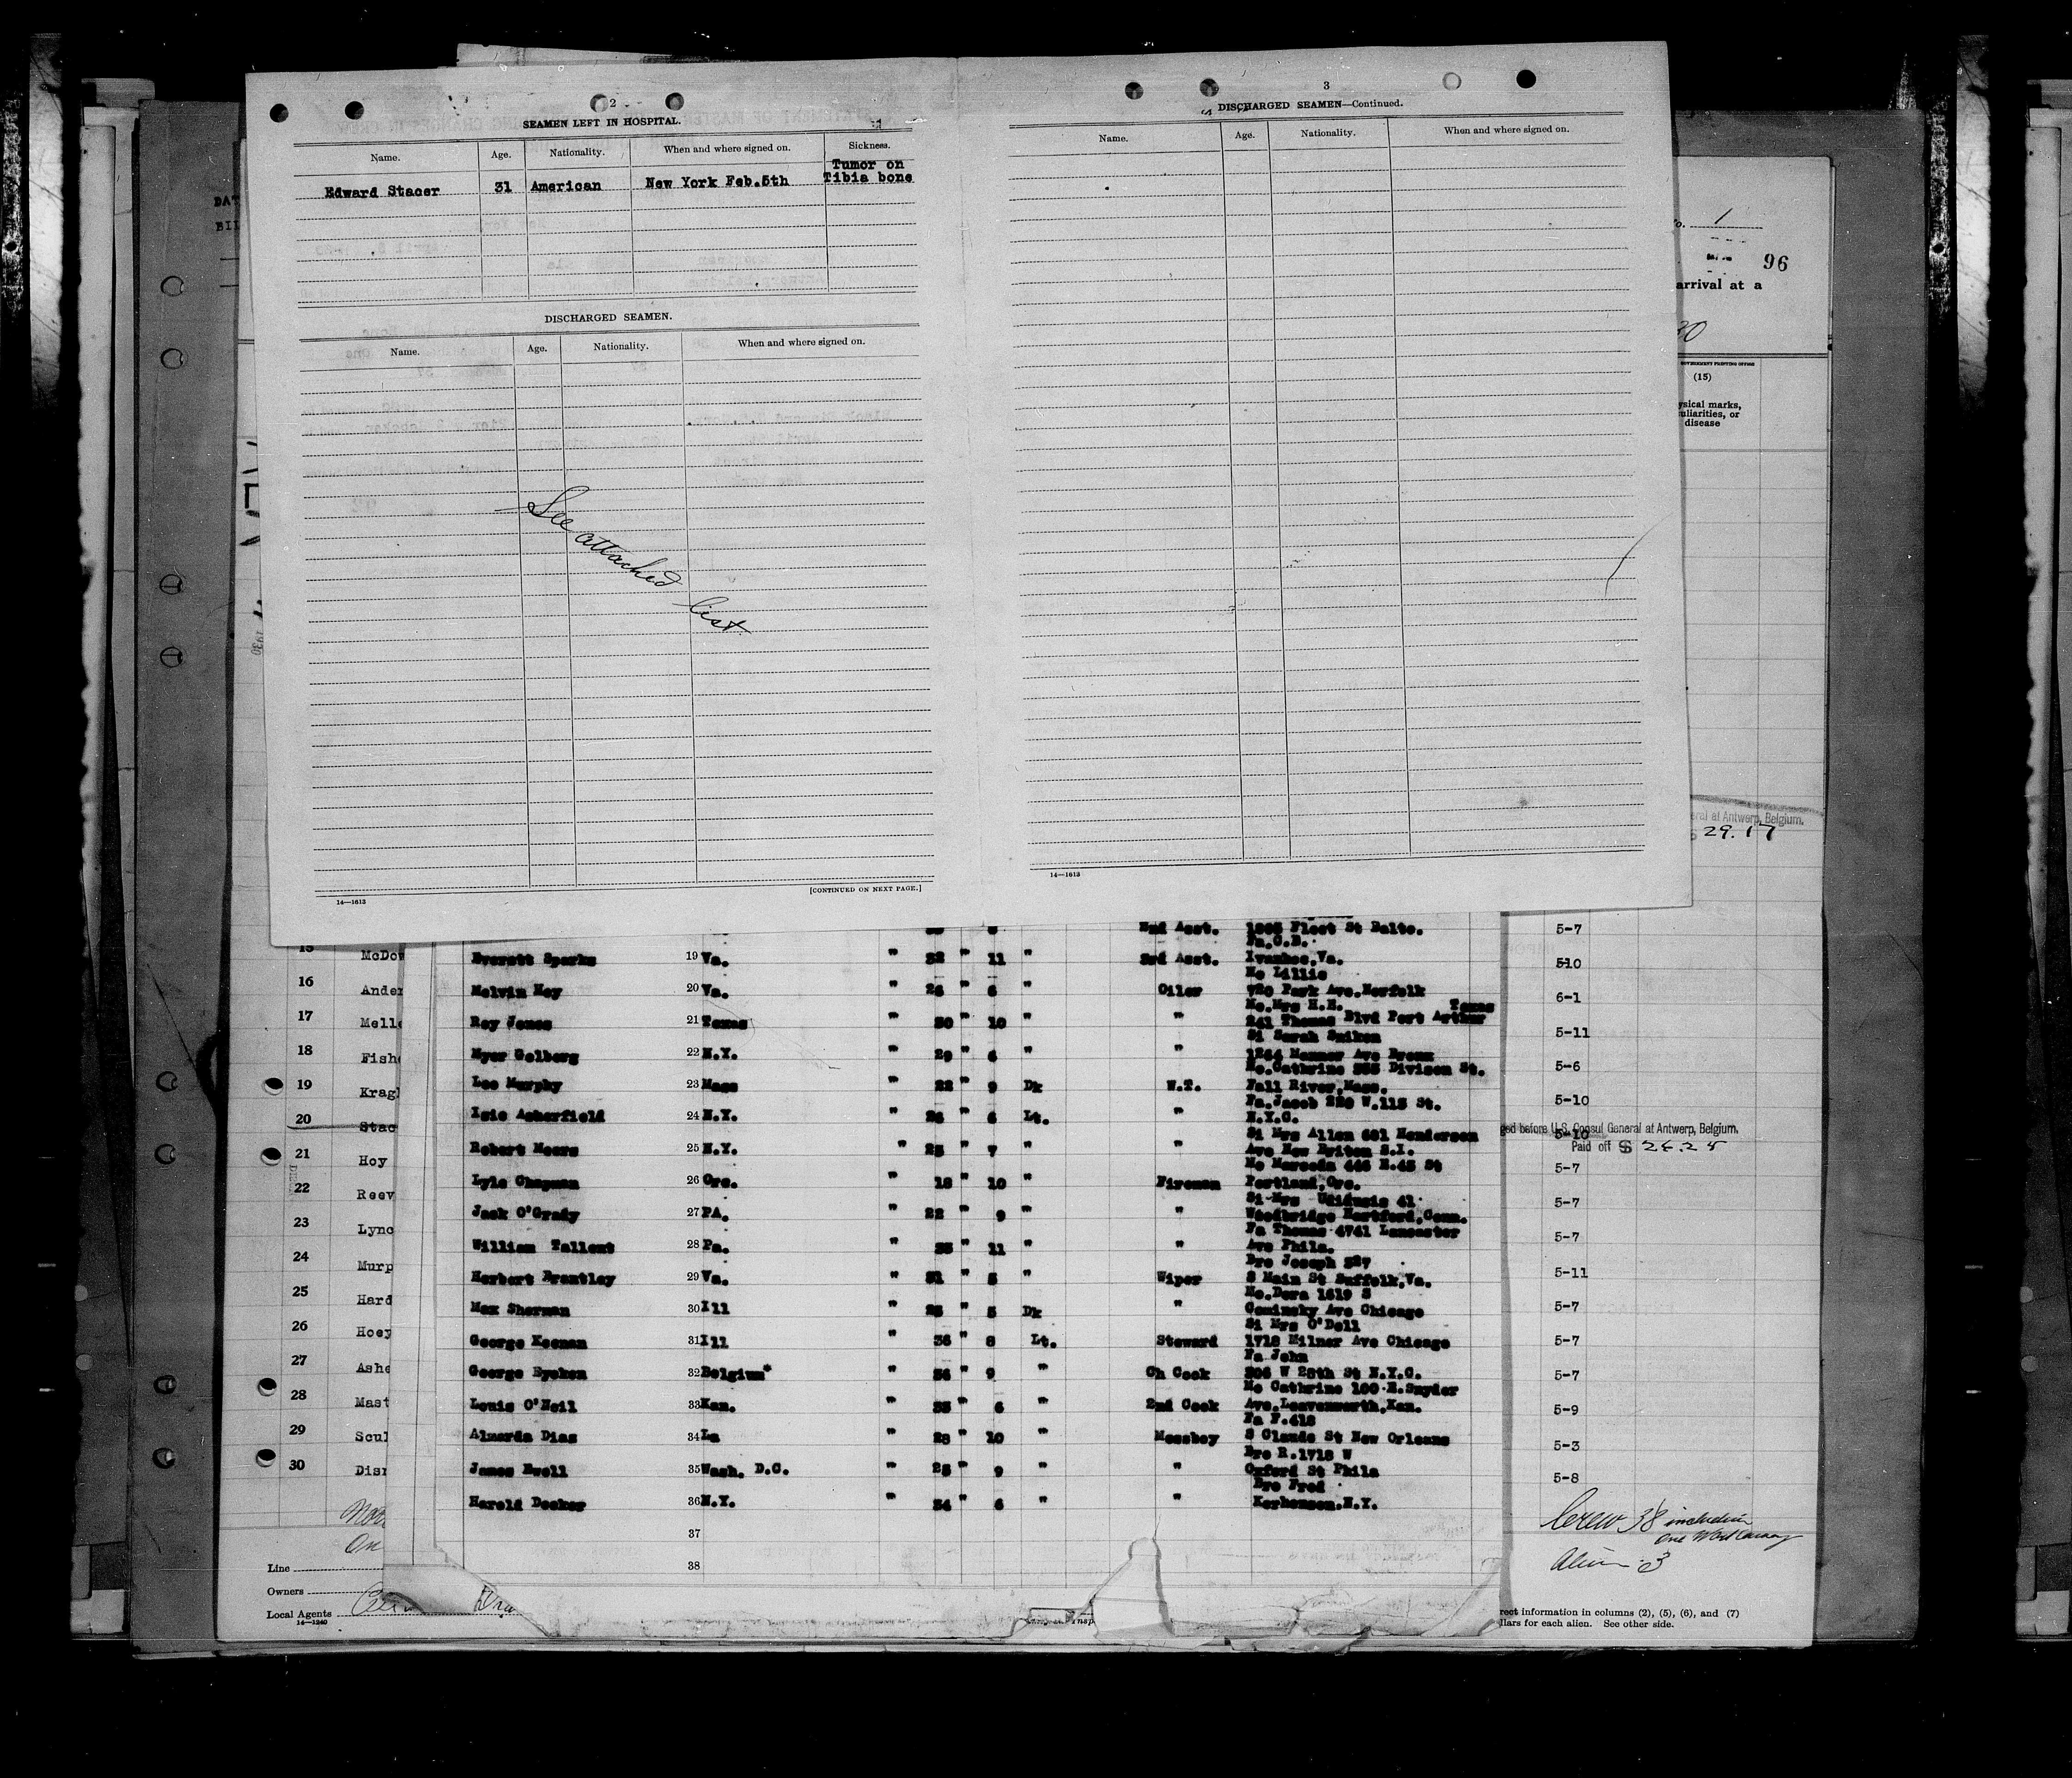 2
SEAMEN LEFT IN HOSPITAL.
Name. Age. Nationality. When and where signed on. Sickness.
Edward Stacer 31 American New York Feb.5th Tumor on
Tibia bone
DISCHARGED SEAMEN.
Name. Age. Nationality. When and where signed on.
See attached list
[CONTINUED ON NEXT PAGE.]
14—1613
3
DISCHARGED SEAMEN—Continued.
Name. Age. Nationality. When and where signed on.
14—1613
DAT
BIL
1
96
arrival at a
30
GOVERNMENT PRINTING OFFICE
(15)
disease
at Antwerp, Belgium.
29.17
15 McDow
16 Ander
17 Melle
18 Fishe
19 Kragh
20 Stac
21 Hoy
22 Reev
23 Lync
24 Murp
25 Hard
26 Hoey
27 Ashe
28 Mast
29 Scul
30 Disn
2nd Asst. Fleet St Balto. 5-7
Fa.C.B.
Everett Sparks 19 Va. " 32 " 11 " 3rd Asst. Ivanhoe,Va. 5-10
Mo Lillie
Melvin Hoy 20 Va. " 26 " 6 " Oiler 720 Park Ave.Norfolk 6-1
Mo.Mrs H.H. Texas
Roy Jones 21 Texas " 30 " 10 " " 241 Thomas Blvd Port Arthur 5-11
Si Sarah
Myer Golberg 22 N.Y. " 29 " 6 " " Ave Bronx 5-6
Mo.Cathrine 355 Divison St.
Leo Murphy 23 Mass " 22 " 9 Dk W.T. Fall River,Mass. 5-10
Fa.Jacob 220 W.115 St.
Isie Asherfield 24 N.Y. " 26 " 6 Lt. " N.Y.C. 5-10
before U.S. Consul General at Antwerp, Belgium.
Paid off $ 26.25
Si Mrs Allen 681 Henderson
Robert Meers 25 N.Y. " 25 " 7 " " Ave New Briton S.I. 5-7
Lyle Chapman 26 Ore. " 18 " 10 " Fireman Portland,Ore. 5-7
Jack O'Grady 27 PA. " 22 " 9 " " Woodbridge Hartford,Conn. 5-7
Fa Thomas 4741 Lancaster
William Tallent 28 Pa. " 35 " 11 " " Ave Phila. 5-11
Bro Joseph 327
Herbert Brantley 29 Va. " 31 " 5 " Wiper S Main St Suffolk,Va. 5-7
Mo.Dora 1619 S
Max Sherman 30 Ill " 25 " 5 Dk " Ave Chicago 5-7
Si Mrs O'Dell
George Keenan 31 Ill " 36 " 8 Lt. Steward 1718 Milner Ave Chicago 5-7
Fa John
George Eyeken 32 Belgium* " 36 " 9 " Ch Cook 306 W 28th St N.Y.C. 5-9
Mo Cathrine 100 E.Snyder
Louis O'Neil 33 Kan. " 35 " 6 " 2nd Cook Ave.Leavenworth,Kan. 5-3
Fa F.418
Almerda Dias 34 La " 28 " 10 " Messboy S Claude St New Orleans 5-8
Bro R.1718 W
James Ewell 35 Wash. D.C. " 25 " 9 " " Oxford St Phila
Bro Fred
Harold Decker 36 N.Y. " 34 " 6 " " Kerhonson.N.Y.
37
38
Crew 38 including
one Workaway
Alien 3
Line
Owners
Local Agents
14—1240
information in columns (2), (5), (6), and (7)
for each alien. See other side.